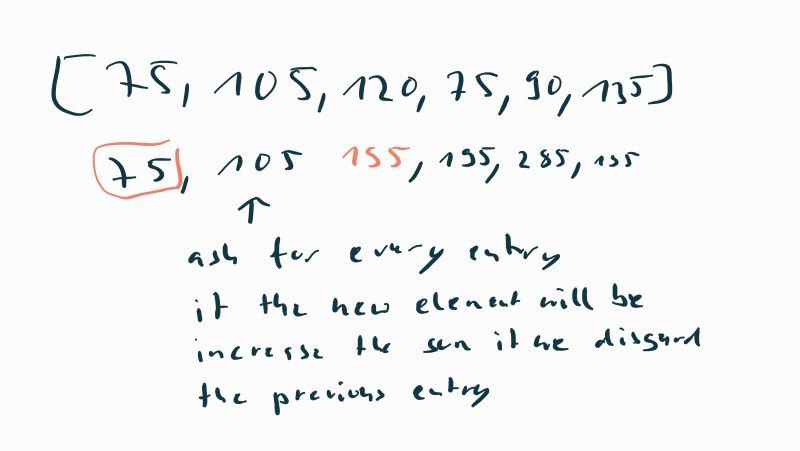 [75, 105, 120, 75, 90, 135]
75, 105 195, 195, 285, 195
ask for every entry
if the new element will be
increase the sum if we disgard
the previous entry